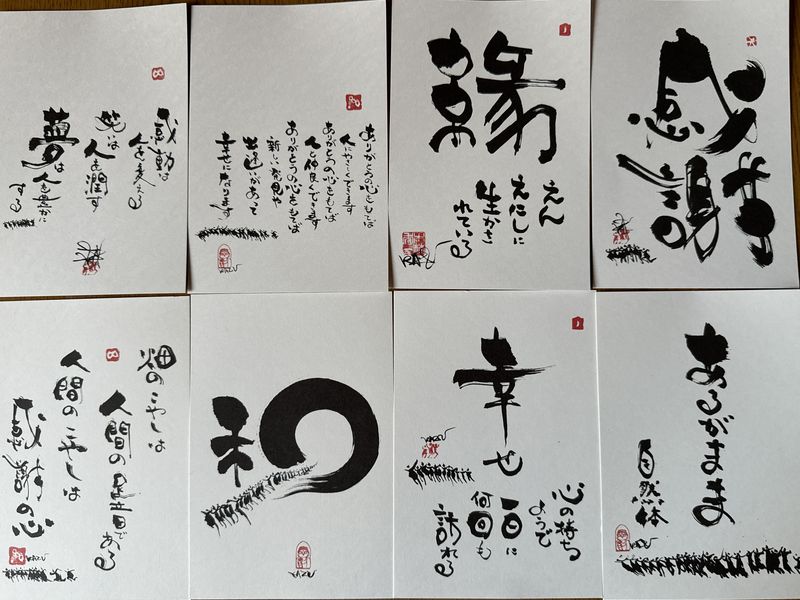 感動は
人を変える
笑は
人を潤す
夢は
人を豊かに
する
ありがとうの心をもてば
人にやさしくできます
ありがとうの心をもてば
人と仲良くできます
ありがとうの心をもてば
新しい発見や
出逢いがあって
幸せになります
KAZU
縁
えん
えにしに
生かさ
れている
KAZU
感謝
畑のこやしは
人間の足音で
ある
人間のこやしは
感謝の心
KAZU
和
KAZU
幸せ
心の持ち
ようで
一日に
何回も
訪れる
KAZU
あるがまま
自然体
KAZU